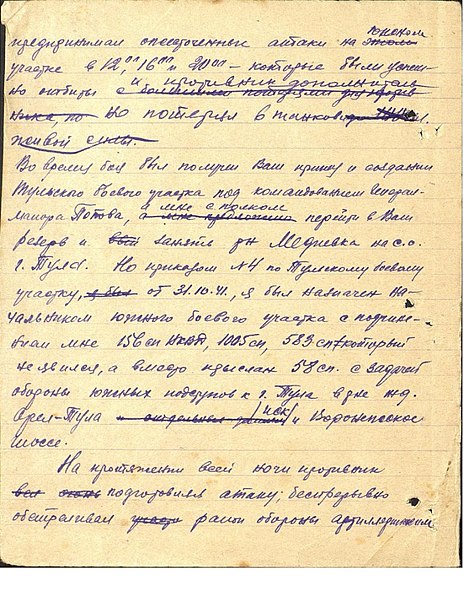 южном
предпринимал ожесточенные атаки на
участке в 12,00 16.00 и 20.00 – которые были успеш-
и противник дополнитель
но отбиты с большими потерями для против
ника по но потерял 8 танков
живой силы.
Во время боя был получен Ваш приказ о создании
Тульского боевого участка под командованием Генерал-
и мне с полком
майора Попова, а мне предложено перейти в Ваш
резерв и занять рн Медвенка на с.о.
г. Тула. Но приказом №4 по Тульскому боевому
участку, я был от 31.10.41., я был назначен На-
чальником южного боевого участка с подчине-
нием мне 156 сп НКВД, 1005 сп, 583 сп /который
не явился, а вместо него выслан 58 сп. с задачей
обороны южных подступов к г. Тула в р-не жд.
иск/
Орел-Тула и отдельных и Воронежское
шоссе.
На протяжении всей ночи противник
вел подготовил атаку, беспрерывно
обстреливал участ район обороны артиллерийским